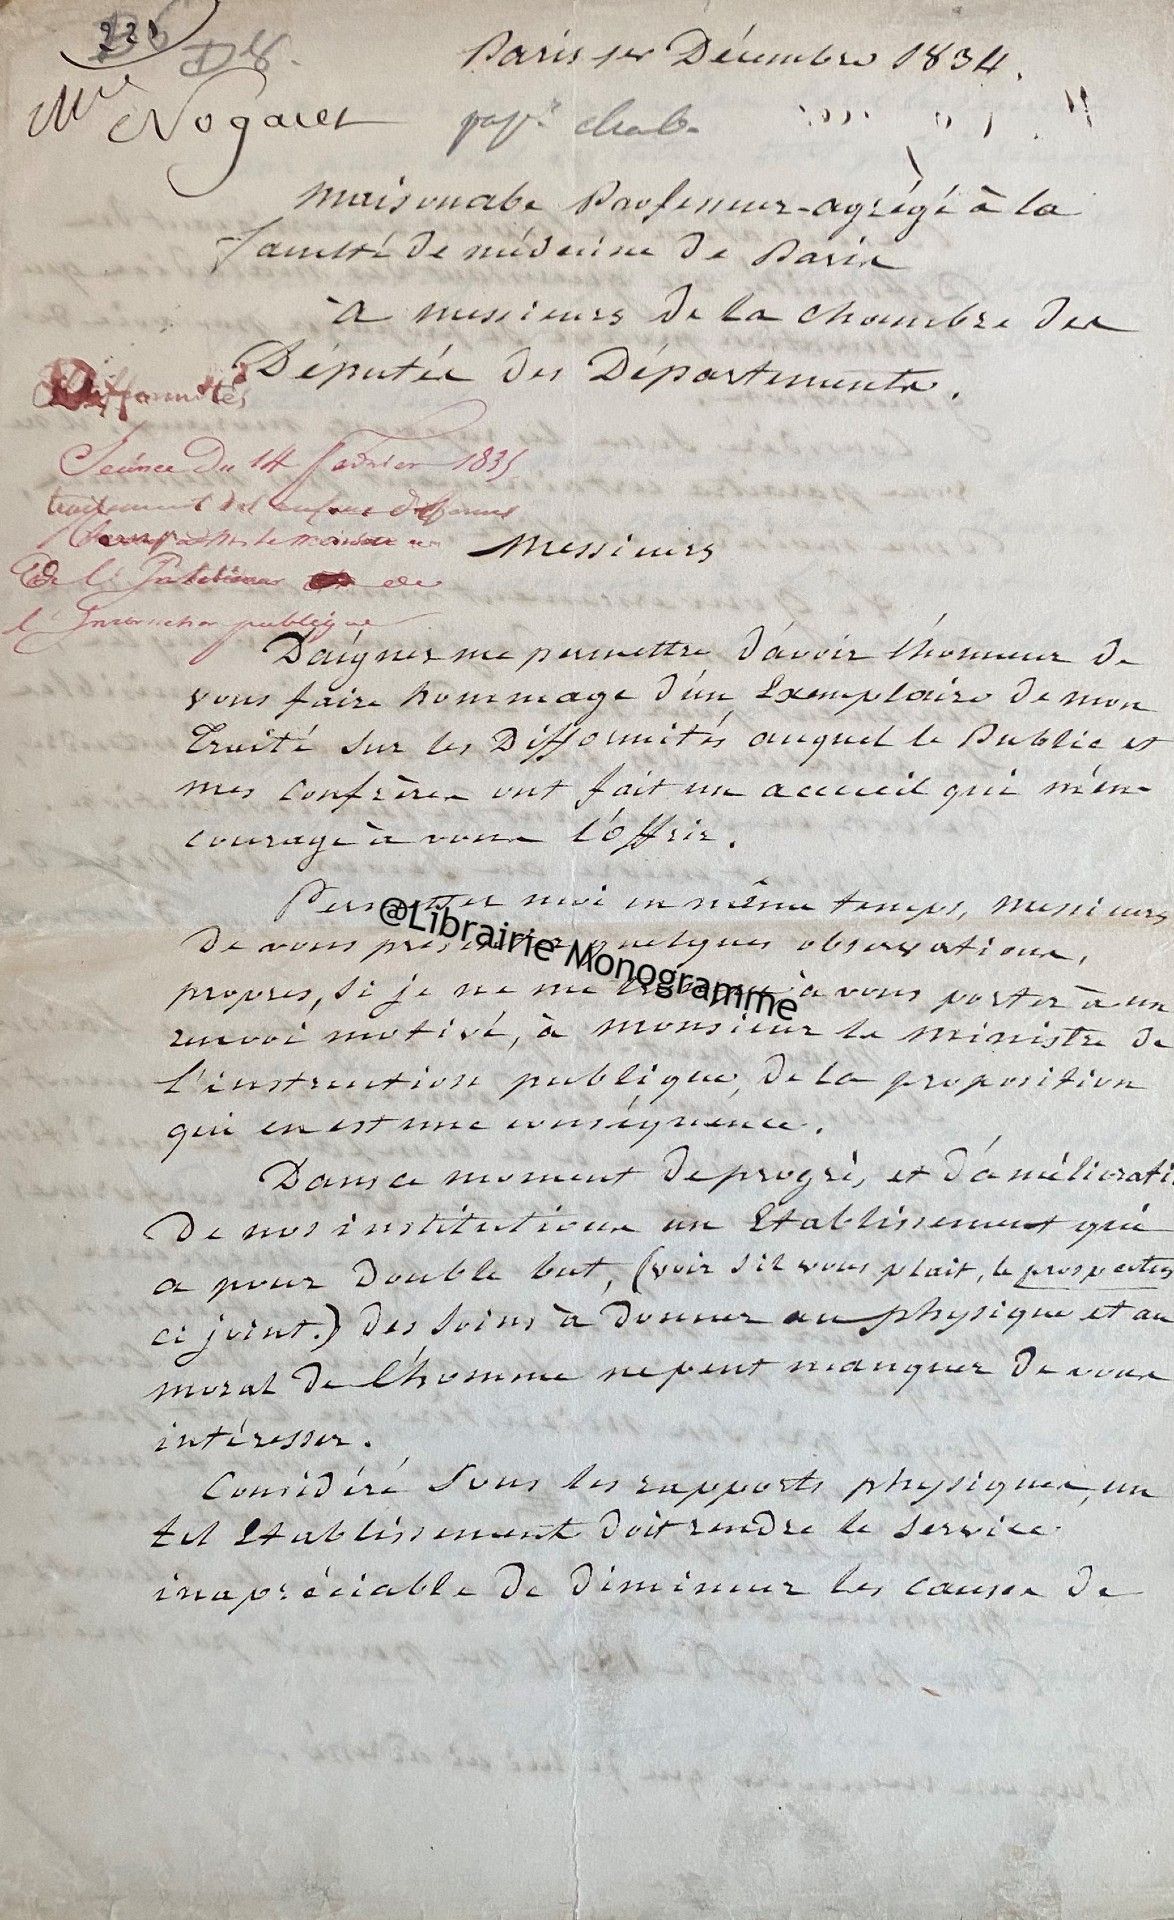 221
Paris 1er Décembre 1834.
Mr Nogaret
Maisonabe Professeur-agrégé à la
faculté de médecine de Paris
à messieurs de la chambre des
Députés des Départements.
Difformités
Séance du 14 février 1835
traitement des enfans difformes
de l'Intérieur et de
l'Instruction publique
Messieurs
Daignez me permettre d'avoir l'honneur de
vous faire hommage d'un Exemplaire de mon
Traité sur les Difformités auquel le Public et
mes confrères ont fait un accueil qui m'en-
courage à vous l'offrir.
Permettez moi en même temps, messieurs
de vous présenter quelques observations,
propres, si je ne me trompe à vous porter à un
renvoi motivé, à monsieur le ministre de
l'instruction publique, de la proposition
qui en est une conséquence.
Dans ce moment de progrès, et d'améliorati
de nos institutions un Etablissement qui
a pour double but, (voir s'il vous plait, le prospectus
ci joint.) des soins à donner au physique et au
moral de l'homme ne peut manquer de vous
intéresser.
Considéré sous les rapports physiques, un
tel Etablissement doit rendre le service
inapréciable de diminuer les causes de
@Librairie Monogramme